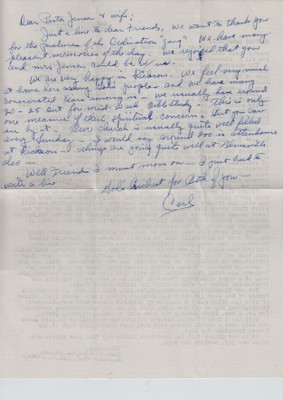 Dear Pastor Jensen & wife;
Just a line to dear friends, we want to thank you
for the pictures of the Ordination "gang". We have many
pleasant memories of the day. We rejoiced that you
and Mrs. Jensen could be with us.
We are very happy in Dickson. We feel very much
at home here among these people, and we have many
consecrated ones among them. We usually have around
20 - 25 out for mid-week Bible study. This is only
one measure of their spiritual concern. But you can
see by it. Our Church is usually quite well filled
every Sunday - I would say around 200 in attendance
at Dickson. Things are going quite well at
also -
Well Friends I must move on - I just had to
write a line
God's Richest for Both of you -
Carl